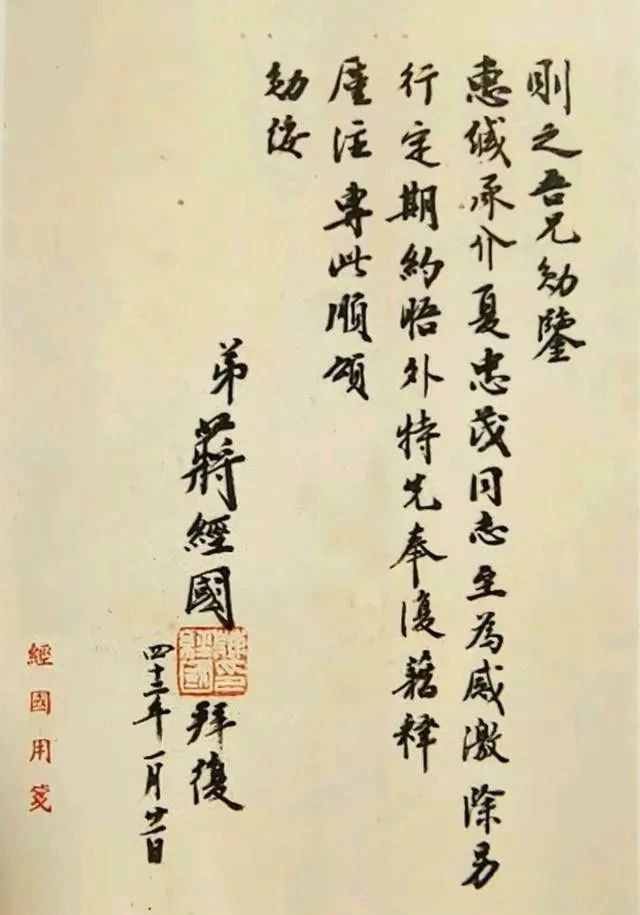 則之吾兄勛鑒
惠緘承介夏忠茂同志至為感激除另
行定期約晤外特先奉復藉釋
廑注專此順頌
勛綏
弟蔣經國拜復
四十三年一月廿一日
經國用箋